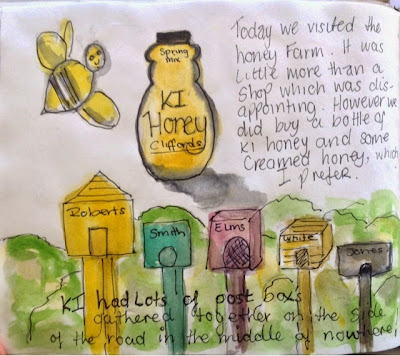 Today we visited the
honey Farm. It was
little more than a
shop which was dis-
appointing. However we
did buy a bottle of
KI honey and some
Creamed honey, which
I prefer.
Spring
mix
KI
Honey
Cliffords
Roberts
Smith
Elms
White
Jones
KI had Lots of post boxs
gathered together on the side
of the road in the middle of nowhere!